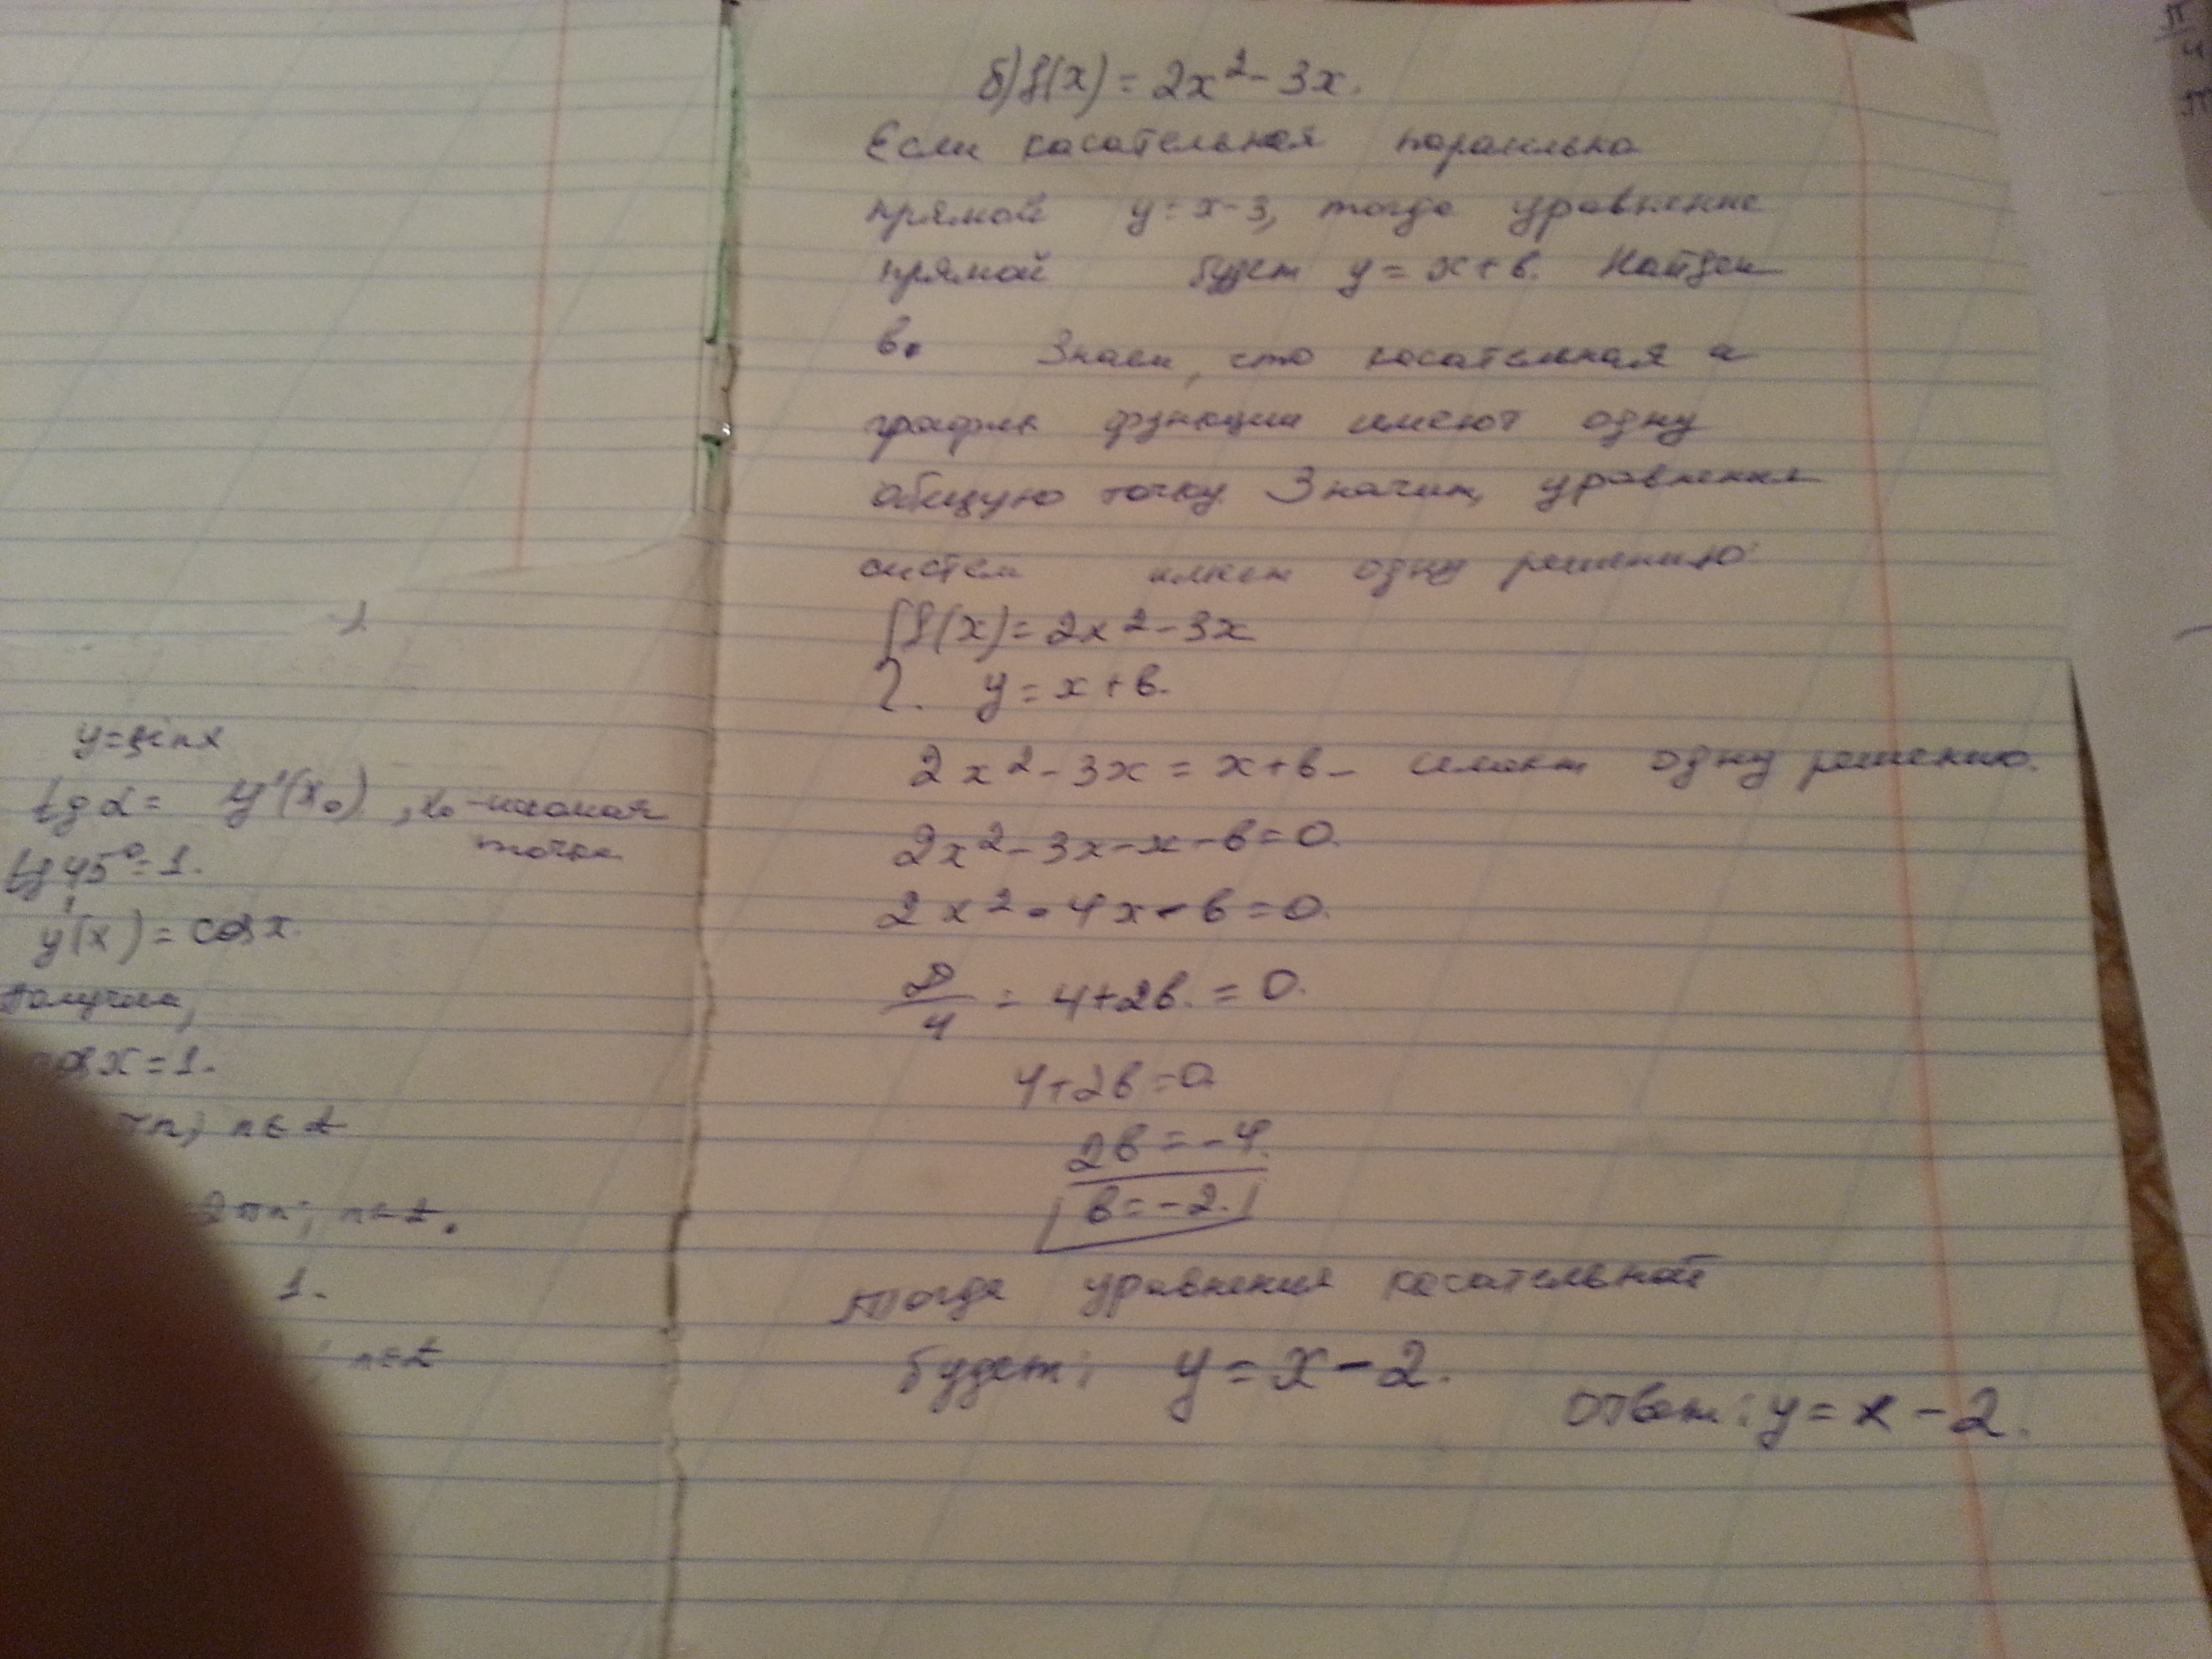 y=sinx
tgα= y'(x₀) , x₀-искомая
точка
tg45°=1.
y'(x)=cosx.
Получим,
cosx=1.
n∈Z
2πn; n∈Z.
1.
; n∈Z
б) f(x)=2x²-3x.
Если касательная паралельна
прямой y=x-3, тогда уравнение
прямой будет y=x+b. Найдем
b. Знаем, что касательная и
график функции имеют одну
общую точку. Значит, уравнения
систем имеет одну решению:
{f(x)=2x²-3x
{. y=x+b.
2x²-3x=x+b- имеет одну решению.
2x²-3x-x-b=0.
2x²-4x-b=0.
D/4 = 4+2b.=0.
4+2b=0
2b=-4.
b=-2.
Тогда уравнения касательной
будет: y=x-2.
Ответ: y=x-2.